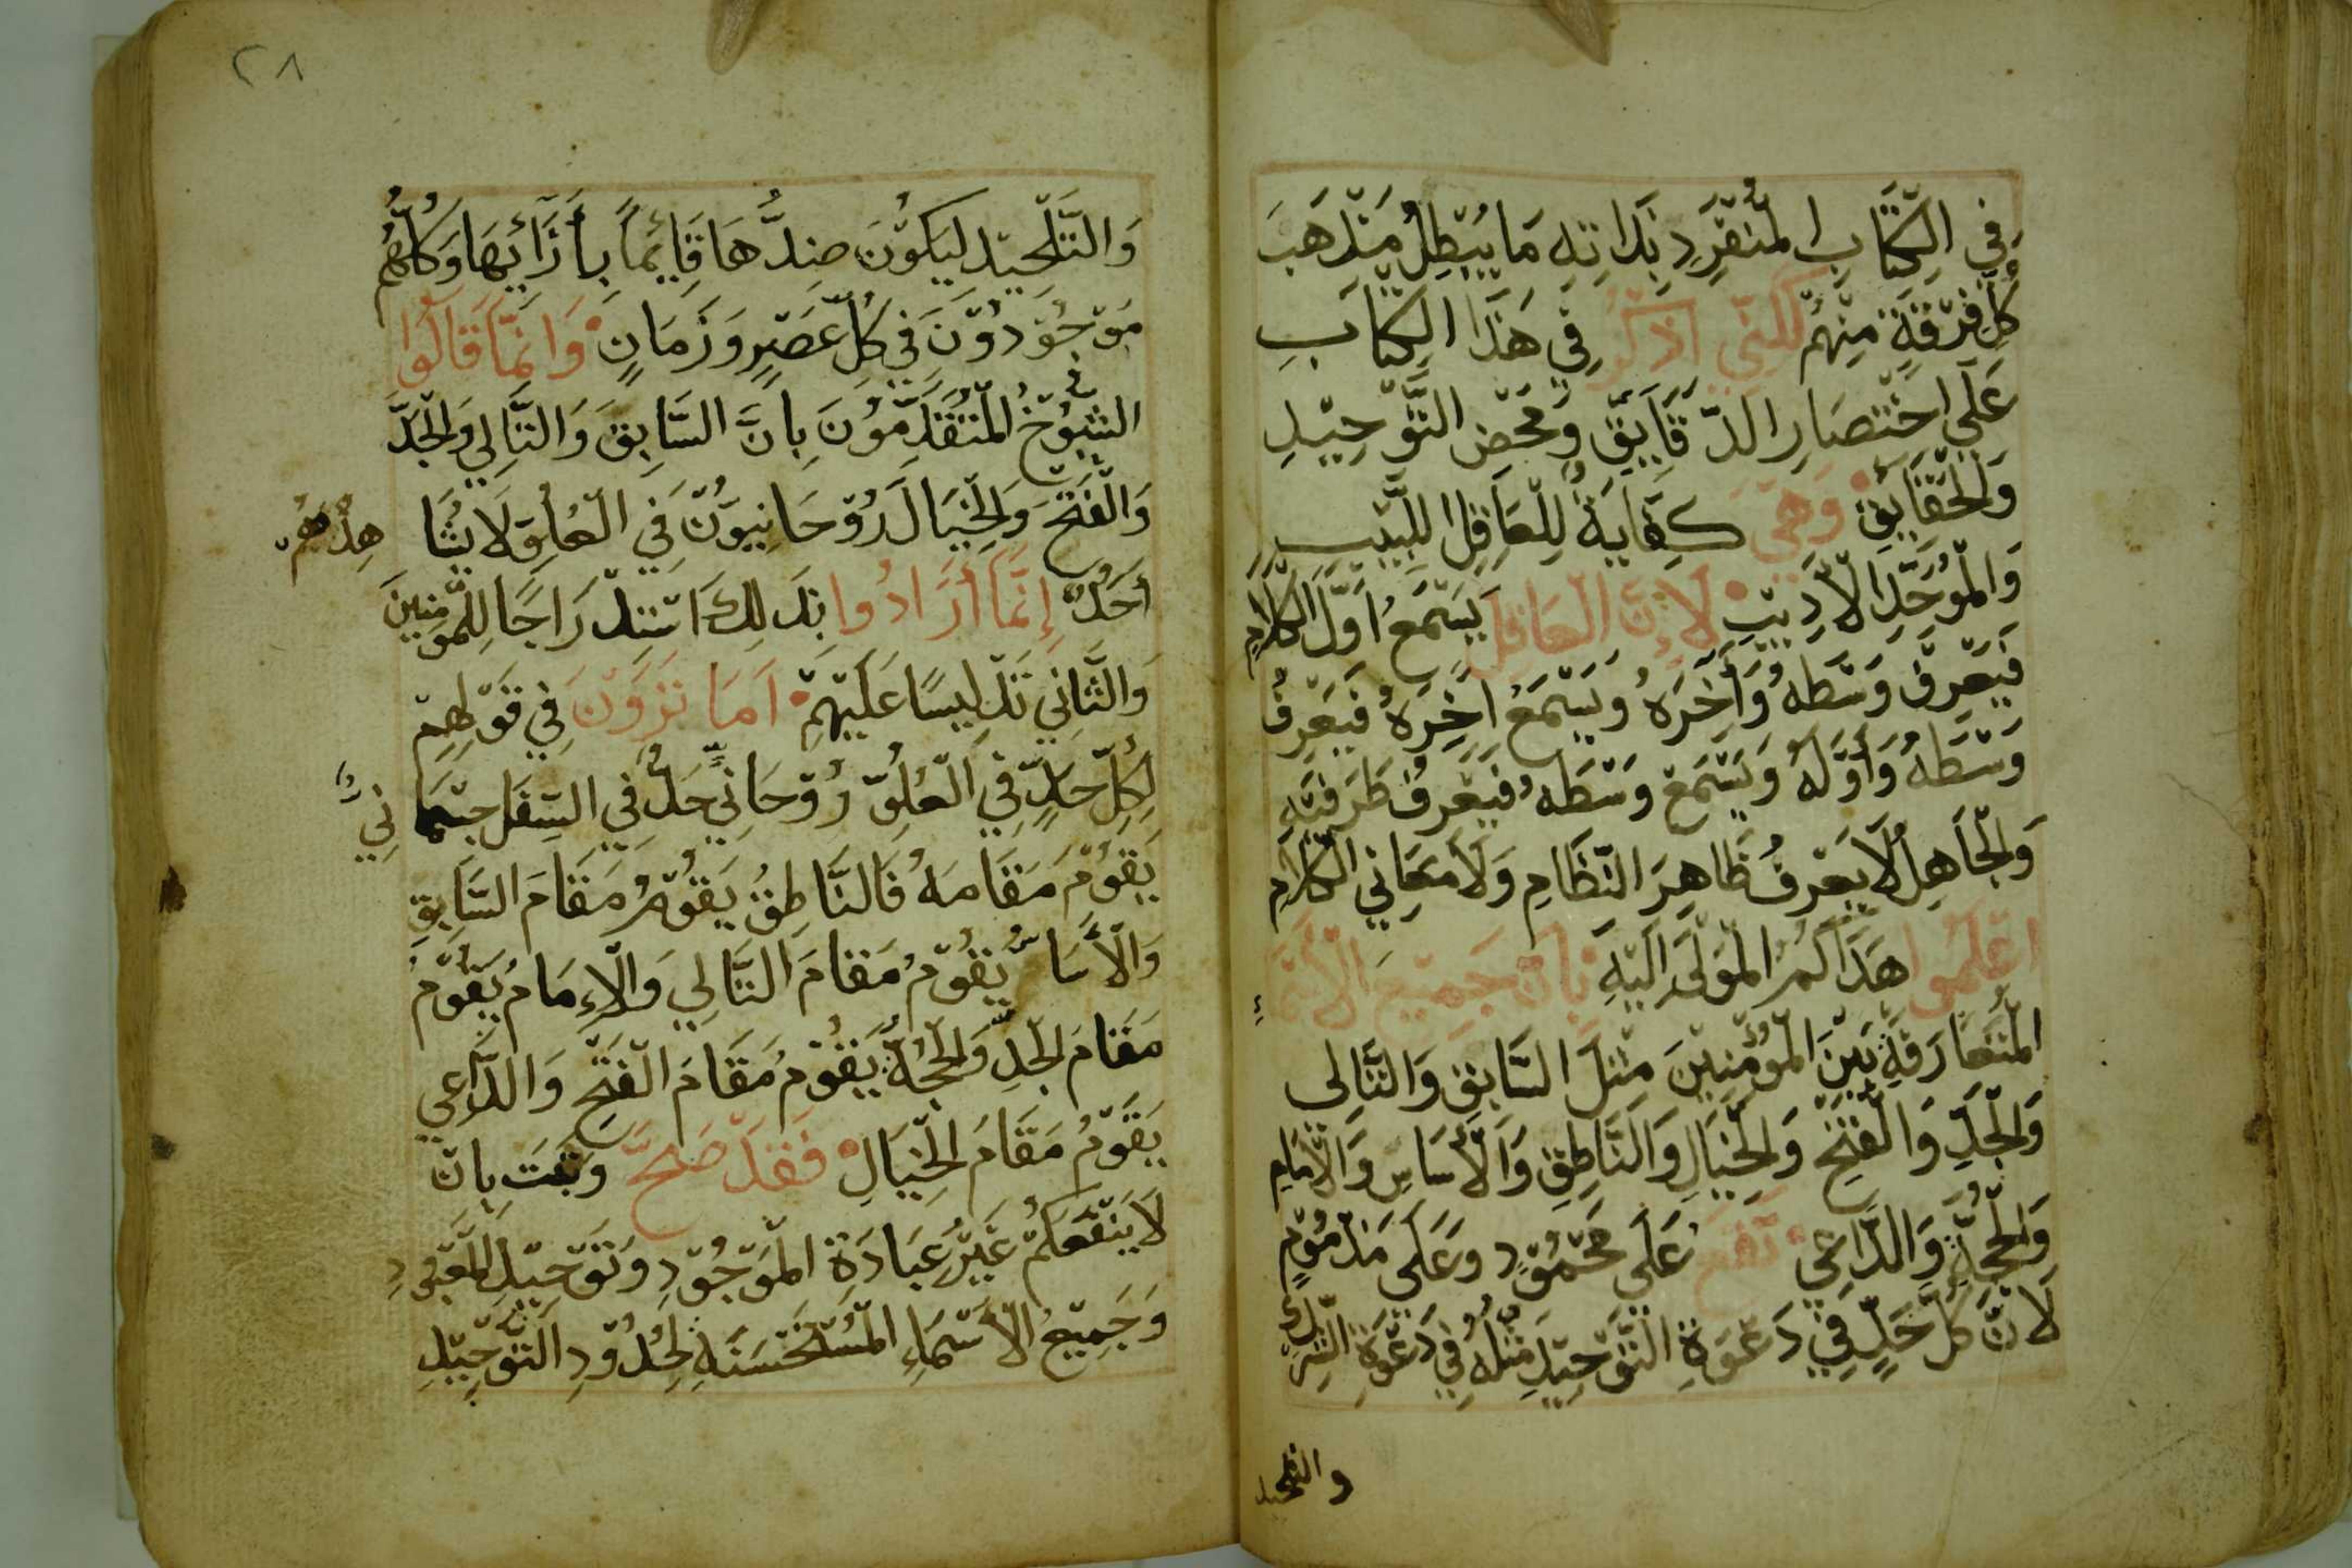 فِي الْكِتَابِ الْمُنْفَرِدِ بِذَاتِهِ مَا يُبْطِلُ مَذْهَبَ
كُلِّ فِرْقَةٍ مِنْهُمْ لَكِنِّي اَذْكُرُ فِي هَذَا الْكِتَابِ
عَلَى اخْتِصَارِ الدَّقَايِقِ وَمَحْضِ التَّوْحِيْدِ
وَالْحَقَايِقِ وَهِيَ كِفَايَةٌ لِلْعَاقِلِ اللَّبِيْبِ
وَالْمُوَحِّدِ الْاَدِيْبِ لَاِنَّ الْعَاقِلَ يَسْمَعُ اَوَّلَ الْكَلَامِ
فَيَعْرِفُ وَسْطَهُ وَآخِرَهُ وَيَسْمَعُ اٰخِرَهُ فَيَعْرِفُ
وَسْطَهُ وَأَوَّلَهُ وَيَسْمَعُ وَسْطَهُ فَيَعْرِفُ طَرَفَيْهِ
وَالْجَاهِلُ لَا يَعْرِفُ ظَاهِرَ النِّظَامِ وَلَا مَعَانِي الْكَلَامِ
اعْلَمُوا هَدَاكُمُ الْمَوْلَى اِلَيْهِ بِاَنَّ جَمِيْعَ الْاَسْمَاءِ
الْمُتَعَارَفَةِ بَيْنَ الْمُؤْمِنِيْنَ مِثْلَ السَّابِقِ وَالتَّالِى
وَالْجَدِّ وَالْفَتْحِ وَالْخَيَالِ وَالنَّاطِقِ وَالْأَسَاسِ وَالْاِمَامِ
وَالْحُجَّةِ وَالدَّاعِي تَقَعُ عَلَى مَحْمُوْدٍ وَعَلَى مَذْمُوْمٍ
لَانَّ كُلَّ حَدٍّ فِي دَعْوَةِ التَّوْحِيْدِ مِثْلُهُ فِي دَعْوَةِ الشِّرْكِ
والتلحيد
٢٨
وَالتَّلْحِيْدِ لِيَكُوْنَ ضِدُّهَا قَايِمًا بِأَزَآئِهَا وَكُلُّهُمْ
مَوْجُوْدُوْنَ فِي كُلِّ عَصْرٍ وَزَمَانٍ وَانَّمَا قَالُوا
الشُّيُوْخُ الْمُتَقَدِّمُوْنَ بِاَنَّ السَّابِقَ وَالتَّالِي وَالْجَدَّ
وَالْفَتْحَ وَالْخَيَالَ رُوْحَانِيُّوْنَ فِي الْعُلُوِّ لَا يُشَا هِدُهُمْ
أَحَدٌ إِنَّمَا أَرَادُوا بِذَلِكَ اسْتِدْرَاجًا لِلْمُؤْمِنِينَ
وَالثَّانِي تَدْلِيسًا عَلَيْهِمْ اَمَا تَرَوْنَ فِي قَوْلِهِمْ
لِكُلِّ حَدٍّ فِي الْعُلُوِّ رُوْحَانِيٍّ حَدٌّ فِي السِّفْلِ جِسْمَا نِيٌّ
يَقُوْمُ مَقَامَهُ فَالنَّاطِقُ يَقُوْمُ مَقَامَ السَّابِقِ
وَالْأَسَاسُ يَقُوْمُ مَقَامَ التَّالِي وَالْإِمَامُ يَقُوْمُ
مَقَامَ الْجَدِّ وَالْحُجَّةُ يَقُوْمُ مَقَامَ الْفَتْحِ وَالدَّاعِي
يَقُوْمُ مَقَامَ الْخَيَالِ فَقَدْ صَحَّ وَثَبَتَ بِاَنْ
لَا يَنْفَعَكُمْ غَيْرُ عِبَادَةِ الْمَوْجُوْدِ وَتَوْحِيْدِ الْمَعْبُودِ
وَجَمِيْعُ الْأَسْمَاءِ الْمُسْتَحْسَنَةِ لِحُدُوْدِ التَّوْحِيْدِ